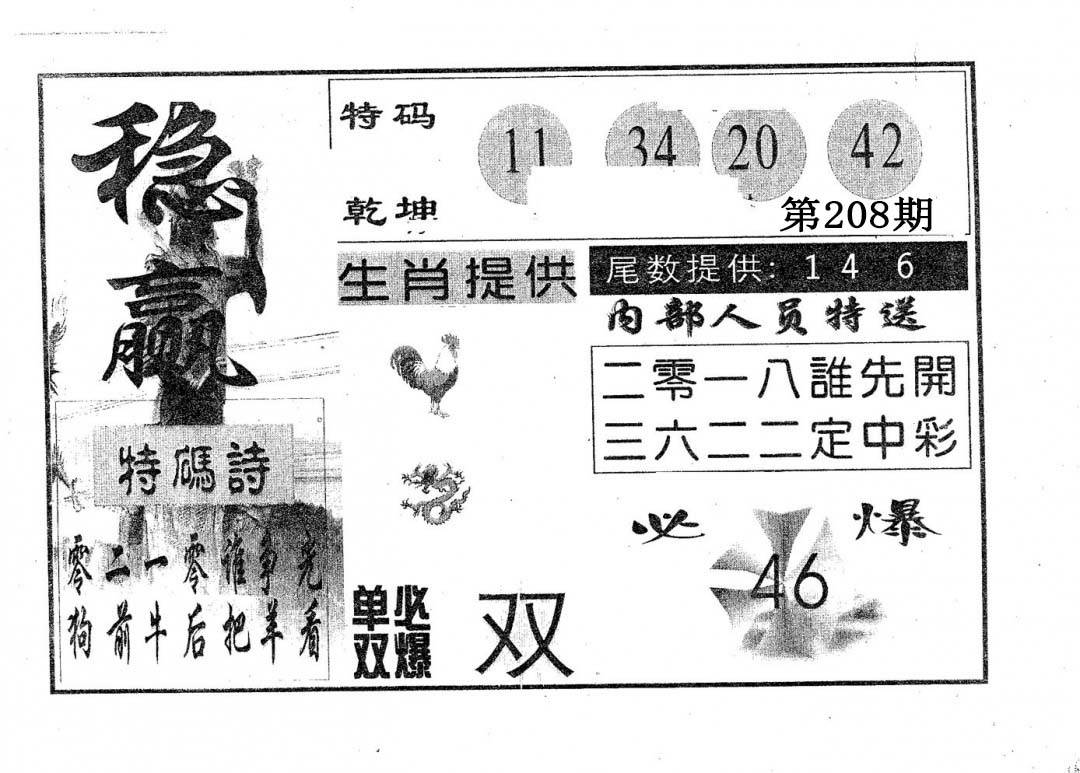 稳赢
特码
乾坤
11 34 20 42
第208期
生肖提供
尾数提供: 1 4 6
内部人员特送
二零一八誰先開
三六二二定中彩
特碼詩
零二一零谁争光
狗前牛后把羊看
单双
必爆
双
必爆
46